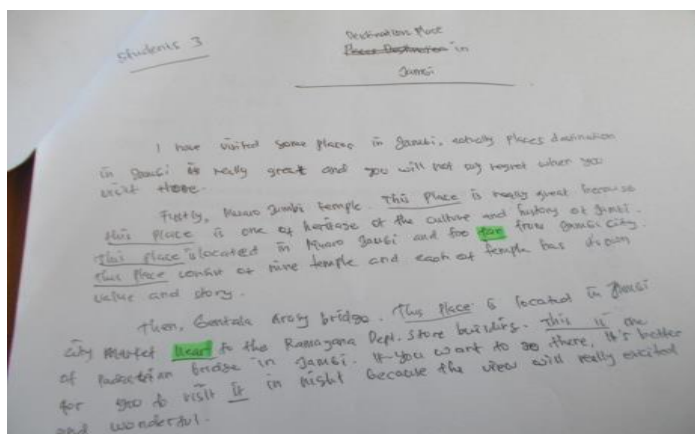 Students 3
Destination Place
Places Destination in
Jambi
I have visited some places in Jambi, actually places destination
in Jambi is really great and you will not regret when you
visit there.
Firstly, Muaro Jambi temple. This Place is really great because
this place is one of heritage of the culture and history of Jambi.
This place is located in Muaro Jambi and too far from Jambi city.
This place consist of nine temple and each of temple has its own
value and story.
Then, Gentala Arasy bridge. This place is located in Jambi
city Market near to the Ramayana Dept. Store building. This is one
of Pedestrian bridge in Jambi. If you want to go there, it's better
for you to visit it in night because the view will really excited
and wonderful.